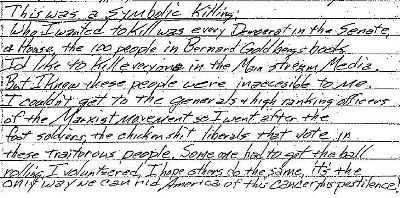 This was a symbolic killing.
Who I wanted to kill was every Democrat in the Senate,
& House, the 100 people in Bernard Goldbergs book.
I'd like to kill everyone in the Main stream Media.
But I know these people were inaccesible to me.
I couldn't get to the generals & high ranking officers
of the Marxist movement so I went after the
foot soldiers, the chickenshit liberals that vote in
these traitorous people. Someone had to get the ball
rolling. I volunteered. I hope others do the same, it's the
only way we can rid America of this cancerous pestilence!